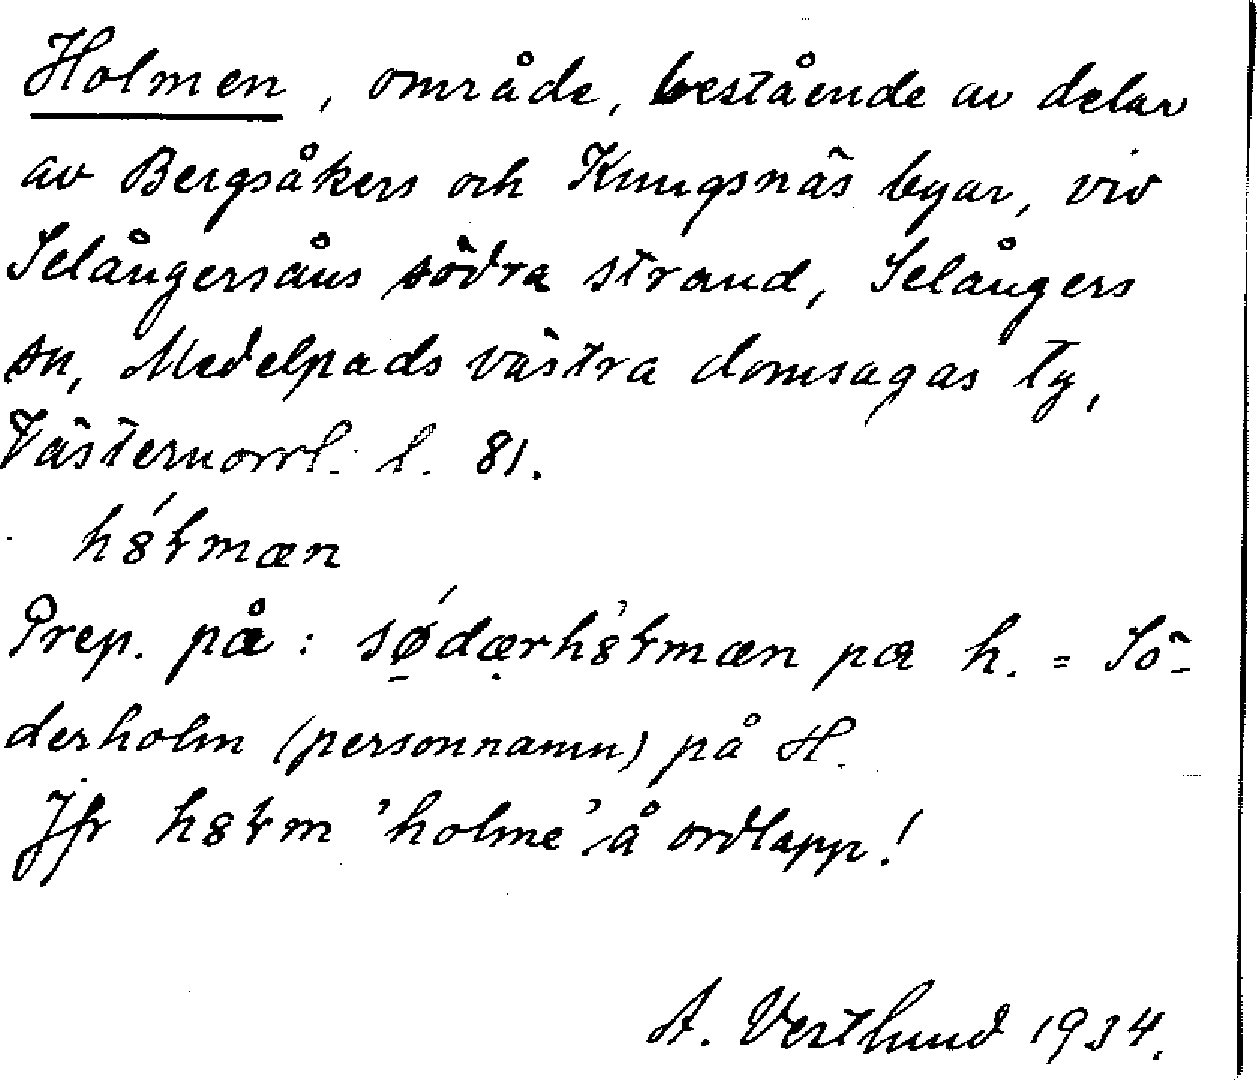 Holmen, område, bestående av delar
av Bergsåkers och Kungsnäs byar, vid
Selångersåns södra strand, Selångers
sn, Medelpads västra domsagas tg,
Västernorrl. l. 81.
hȣ́ɽmæn
Prep. på: sǿdærhȣ̀ɽmæn pɑ h. = Sö-
derholm (personnamn) på H.
Jfr hȣɽm 'holme' å ordlapp!
A. Vestlund 1934.